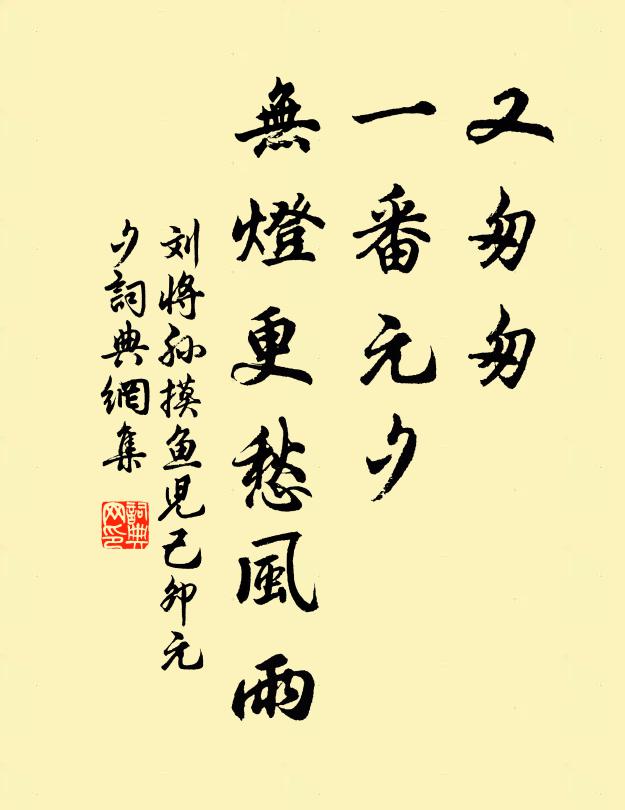 又匆匆
一番元夕
無燈更愁風雨
刘将孙摸鱼児己卯元
夕詞典網集
詞典
网印